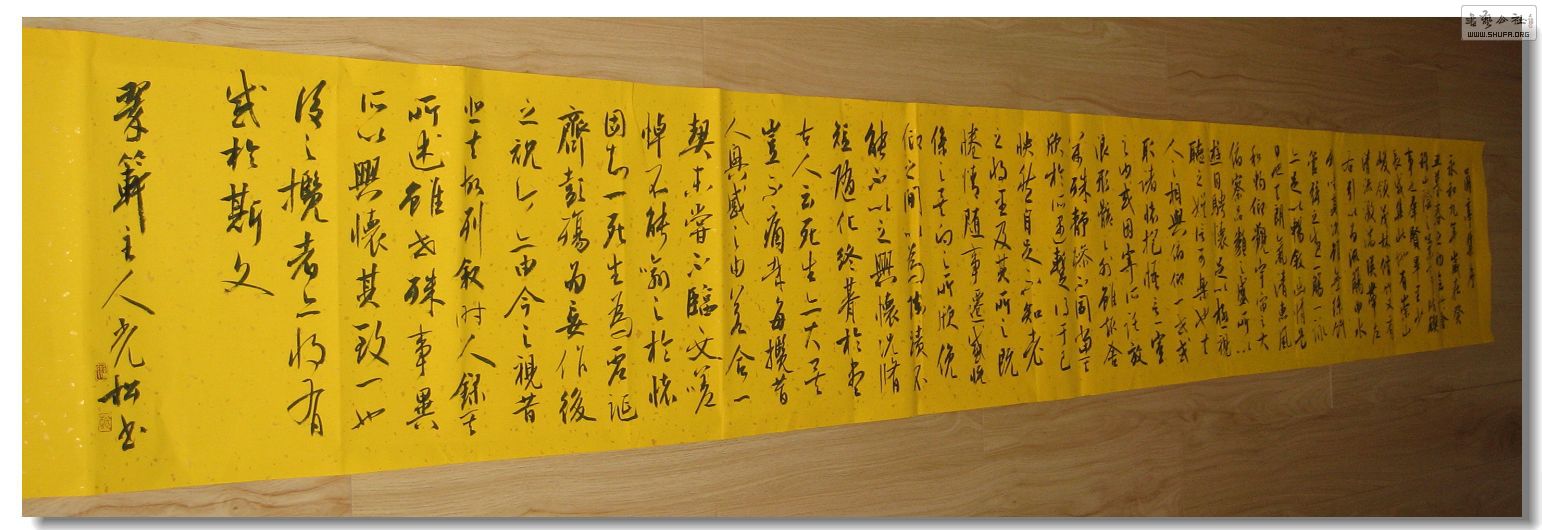 蘭亭集序
永和九年歲在癸
丑暮春之初會于會
稽山陰之蘭亭脩禊
事也群賢畢至少
長咸集此地有崇山
峻領茂林脩竹又有
清流激湍映帶左
右引以為流觴曲水
列坐其次雖無絲竹
管弦之盛一觴一詠
亦足以暢敘幽情是
日也天朗氣清惠風
和暢仰觀宇宙之大
俯察品類之盛所以
遊目騁懷足以極視
聽之娛信可樂也夫
人之相與俯仰一世或
取諸懷抱悟言一室
之內或因寄所託放
浪形骸之外雖趣舍
萬殊靜躁不同當其
欣於所遇暫得於己
快然自足不知老
之將至及其所之既
惓情隨事遷感慨
係之矣向之所欣俛
仰之間以為陳跡不
能不以之興懷況脩
短隨化終朞於盡
古人云死生亦大矣
豈不痛哉每攬昔
人興感之由若合一
契未嘗不臨文嗟
悼不能喻之於懷
固知一死生為虛誕
齊彭殤為妄作後
之視今亦由今之視昔
悲夫故列敘時人錄其
所述雖世殊事異
所以興懷其致一也
後之攬者亦將有
感於斯文
翠主人光松書
書藝公社
WWW.SHUFA.ORG